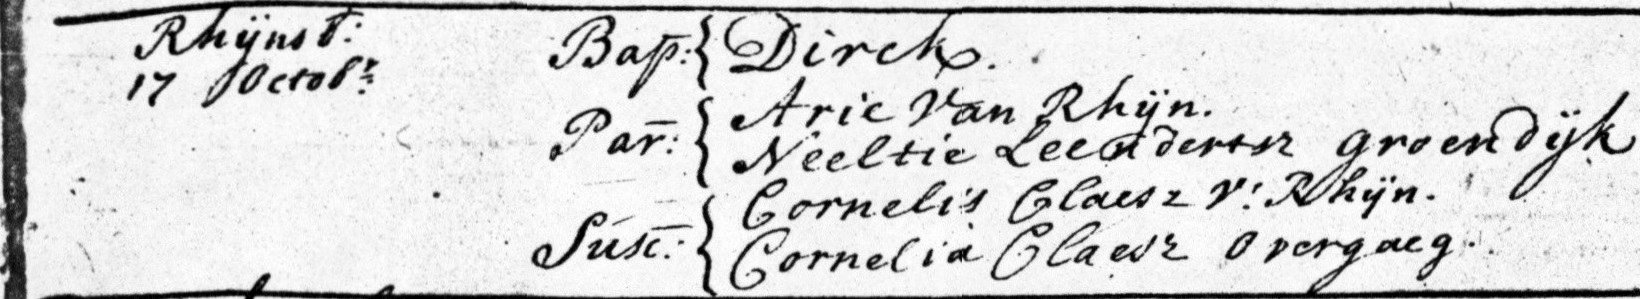 Rhÿnst:
17 Octobr:
Bap: { Dirck.
Par: { Arie Van Rhÿn.
Neeltie Leendertsz groendÿk
Susc: { Cornelis Claesz v: Rhÿn.
Cornelia Claesz Overgaeg.